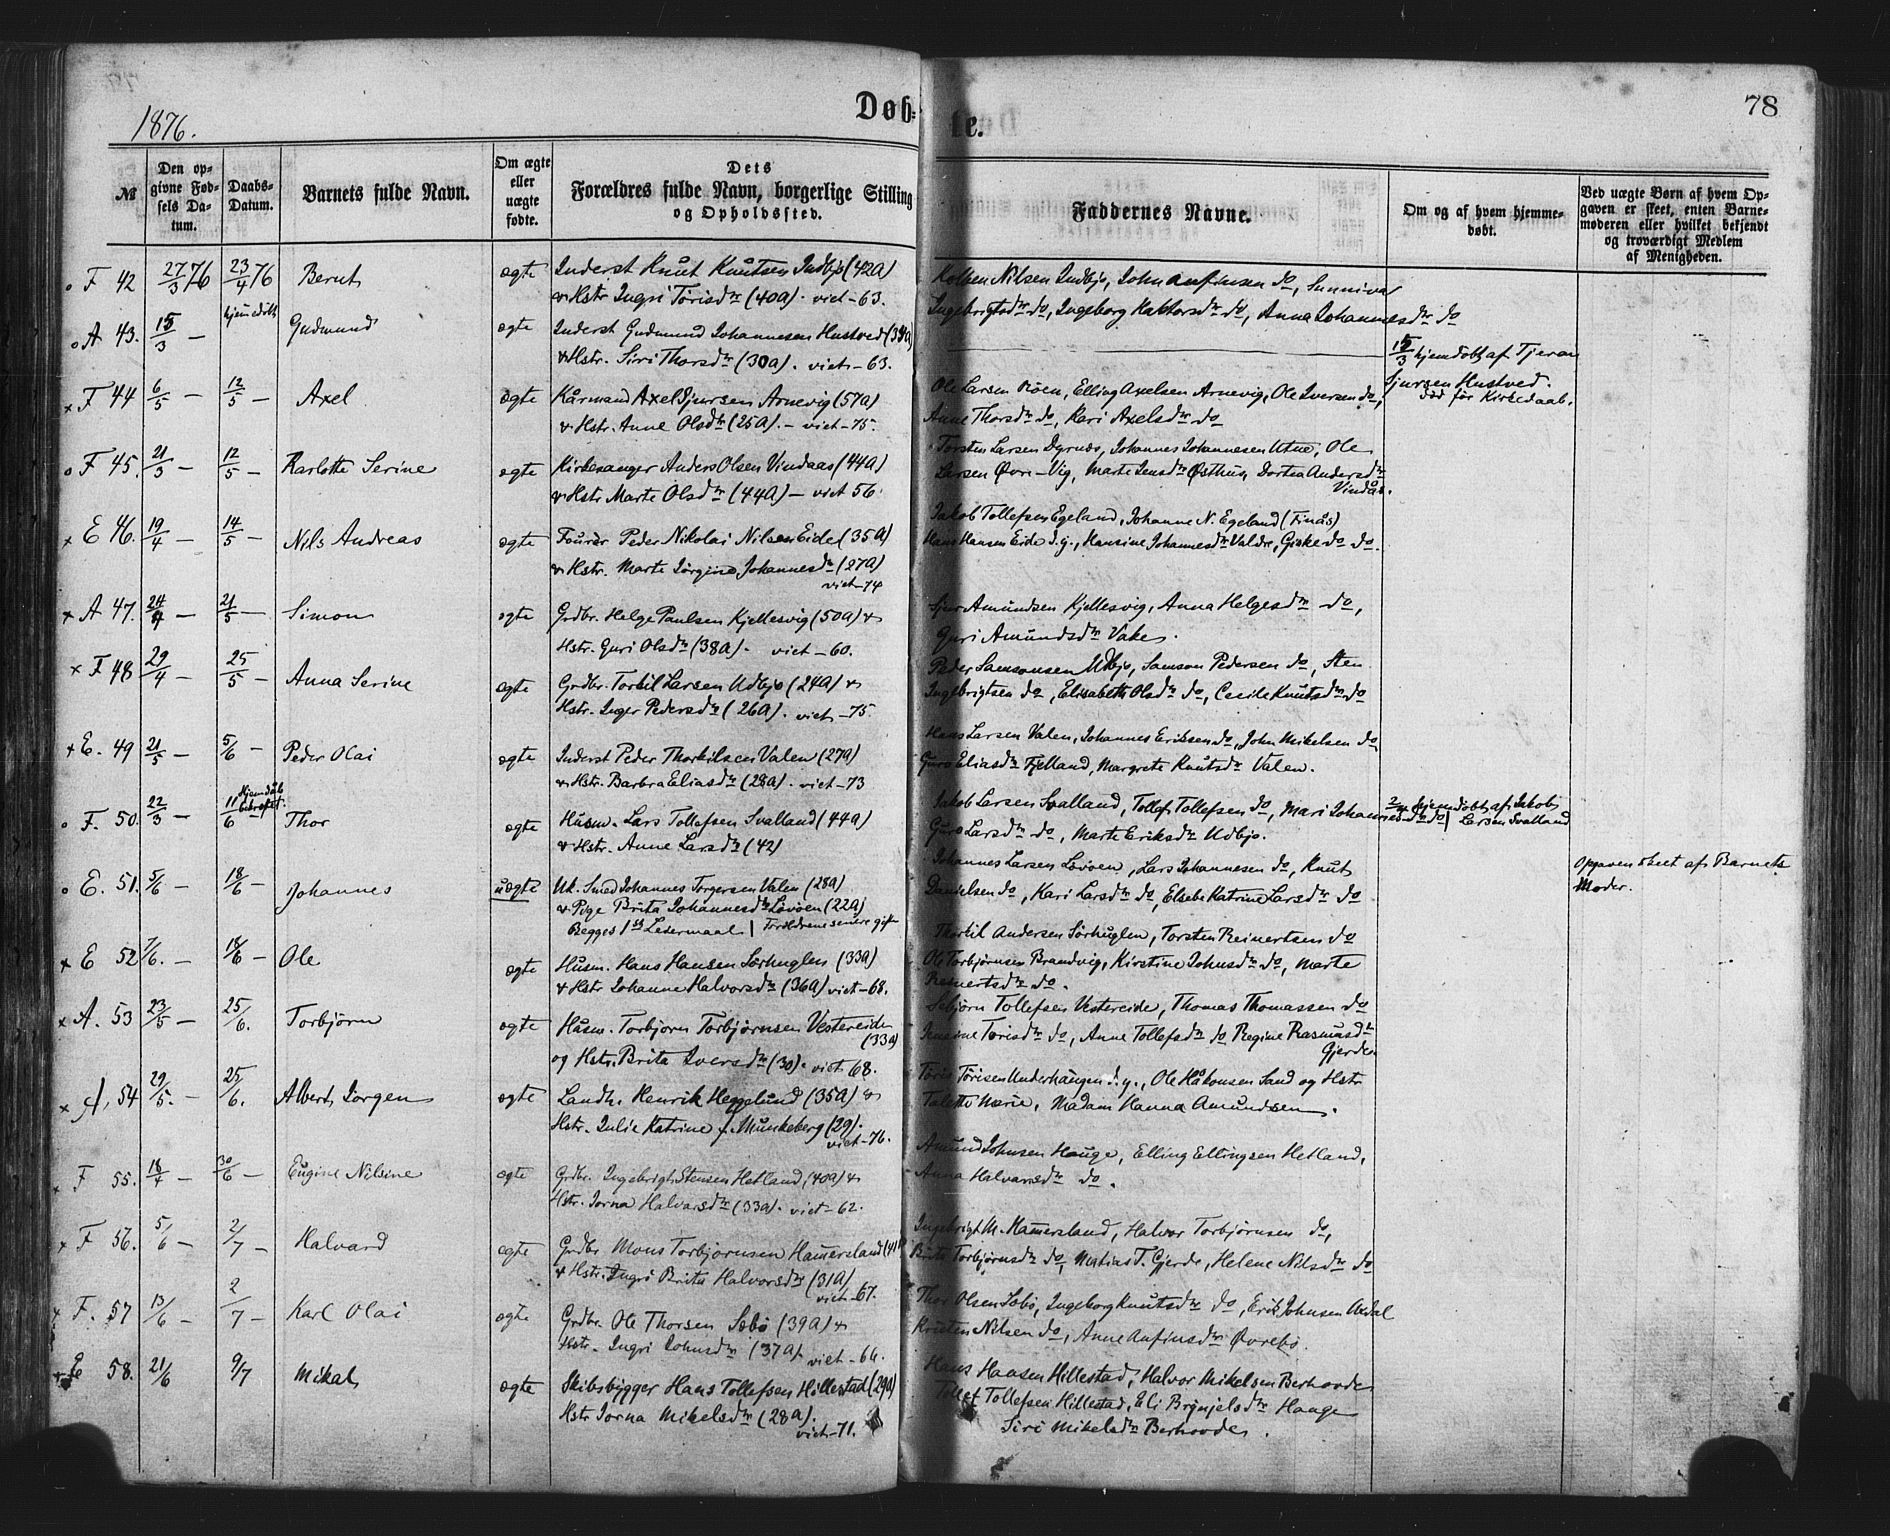 1876.
Døb-
te.
78
№
Den op-
givne Fød-
sels Da-
tum.
Daabs-
Datum.
Barnets fulde Navn.
Om ægte
eller
uægte
fødte.
Dets
Forældres fulde Navn, borgerlige Stilling
og Opholdssted.
Faddernes Navne.
Om og af hvem hjemme-
døbt.
Ved uægte Børn af hvem Op-
gaven er skeet, enten Barne-
moderen eller hvilket bekjendt
og troværdigt Medlem
af Menigheden.
F 42 27/3 76 23/4 76 Bernt ægte Inderst Knut Knutsen Indbjo (42A)
& Hstr Ingri Torisdtr (40A). viet-63.
Kolben Nilsen Indbjo, John Anfinsen do, Sunniva
Ingebrigtsdtr do, Ingeborg Kattorsdtr do, Anna Johannesdtr do
A 43. 15/3 – hjemedøbt Gudmund ægte Inderst Gudmund Johannesen Hustved (34A)
& Hstr. Siri Thorsdtr (30A). viet-63.
15/3 hjemdøbt af Tjeran
Sjursen Hustved.
Død før Kirkedaab.
F 44 6/5 – 12/5 – Axel ægte Kårmand Axel Sjursen Arnevig (57A)
& Hstr. Anne Olsdtr (25A). – viet-75.
Ole Larsen Røen, Elling Axelsen Arnevig, Ole Iversen do,
Anne Thorsdtr do, Kari Axelsdtr do
F 45. 21/3 – 12/5 – Karlotte Serine ægte Kirkesanger Anders Olsen Vindaas (44A)
& Hstr Marte Olsdtr (44A) – viet 56.
Torsten Larsen Dyrnæs, Johannes Johannesen Utne, Ole
Larsen Øvre-Vig, Marte Jensdtr Østhus, Dortea Andersdtr
Vindås.
E 46. 19/4 – 14/5 – Nils Andreas ægte Fourer Peder Nikolai Nilsen Eide (35A)
& Hstr. Marte Jørgine Johannesdtr (27A)
viet-74
Jakob Tollefsen Egeland, Johanne N. Egeland (Finås)
Hans Hansen Eide d.y., Hansine Johannesdtr Valdr, Giske do do.
A 47. 24/4 – 21/5 – Simon ægte Grdbr. Helge Paulsen Kjellesvig (50A) &
Hstr. Guri Olsdtr (38A). viet-60.
Sjur Amundsen Kjellesvig, Anna Helgesdtr do,
Guri Amundsdtr Vake.
F 48 29/4 – 25/5 – Anna Serine ægte Grdbr. Torkil Larsen Udbjo (24A) &
Hstr. Inger Pedersdtr (26A). viet-75.
Peder Samsonsen Udbjo, Samson Pedersen do, Sten
Ingebrigtsen do, Elisabeth Olsdtr do, Cecile Knutsdtr do
E. 49 21/5 – 5/6 – Peder Olai ægte Inderst Peder Thorkilsen Valen (27A)
& Hstr. Barbra Eliasdtr (28A). viet-73
Hans Larsen Valen, Johannes Eriksen do, John Mikelsen do
Guro Eliasdtr Fjelland, Margrete Knutsdtr Valen.
F. 50. 22/3 – 11/6 Hjemdåb bekræftet. Thor ægte Husm. Lars Tollefsen Svalland (44A)
& Hstr. Anne Larsdtr (42)
Jakob Larsen Svalland, Tollef Tollefsen do, Mari Johannesdtr do
Guro Larsdtr do, Marte Eriksdtr Udbjo.
hjemdøbt af Jakob
Larsen Svalland
E. 51. 5/6 – 18/6 – Johannes uægte Uk. Smed Johannes Torgersen Valen (28A)
& Pige Brita Johannesdtr Løvøen (22A)
Begges 1ste Leiermaal | Forældrene senere gift
Johannes Larsen Løvøen, Lars Johannesen do, Knut
Danielsen do, Kari Larsdtr do, Elsebe Katrine Larsdtr do
Opgaven skeet af Barnets
Moder.
E 52 7/6. – 18/6 – Ole ægte Husm. Hans Hansen Sørhuglen (33A)
& Hstr Johanne Halvorsdtr (36A) viet-68.
Thorkil Andersen Sørhuglen, Torsten Reinertsen do
Ole Torbjørnsen Brandvig, Kirstine Johnsdtr do, Marte
Reinertsdtr do.
A. 53 23/5 – 25/6. Torbjørn ægte Husm. Torbjørn Torbjørnsen Vestereide
(33A)
og Hstr. Brita Iversdtr (30). viet 68.
Sebjørn Tollefsen Vestereide, Thomas Thomassen do
Jensine Torisdtr do, Anne Tollefsdtr do Regine Rasmusdtr
Gjerde
A. 54 29/5. – 25/6. – Albert Jørgen ægte Landh. Henrik Heggelund (35A) &
Hstr. Julie Katrine f. Munkeberg (29).
viet-76.
Toris Torisen Underhaugen d.y., Ole Håkonsen Sand og Hstr
Talette Marie, Madam Hanna Amundsen.
F 55. 18/4 – 30/6 – Eugine Nilsine ægte Grdbr. Ingebrigt Stensen Hetland, (40A) &
Hstr. Jorna Halvorsdtr (33A). viet-62.
Amund Johnsen Hauge, Elling Ellingsen Hetland,
Anna Halvorsdtr do.
F 56. 5/6 – 2/7 – Halvard ægte Grdbr Mons Torbjørnsen Hamersland (41A)
& Hstr. Ingri Brita Halvorsdtr (31A)
viet-67.
Ingebrigt M. Hamersland, Halvor Torbjørnsen do,
Brita Torbjørnsdtr do, Matias T. Gjerde, Helene Nilsdtr do
F. 57 13/6 – 2/7 – Karl Olai ægte Grdbr. Ole Thorsen Sæbø (39A) &
Hstr. Ingri Johnsdtr (37A). viet-64.
Thor Olsen Sæbø, Ingeborg Knutsdtr do, Erik Johnsen Axdal
Kristen Nilsen do, Anne Anfinsdtr Øvrebø.
E 58. 21/6 9/7 Mikal ægte Skibsbygger Hans Tollefsen Hillestad (29A)
Hstr Jorna Mikelsdtr (28A).
viet-71.
Hans Hansen Hillestad, Halvor Mikelsen Berhovde
Tollef Tollefsen Hillestad, Eli Brynjelsdtr Hauge
Siri Mikelsdtr Berhovde.